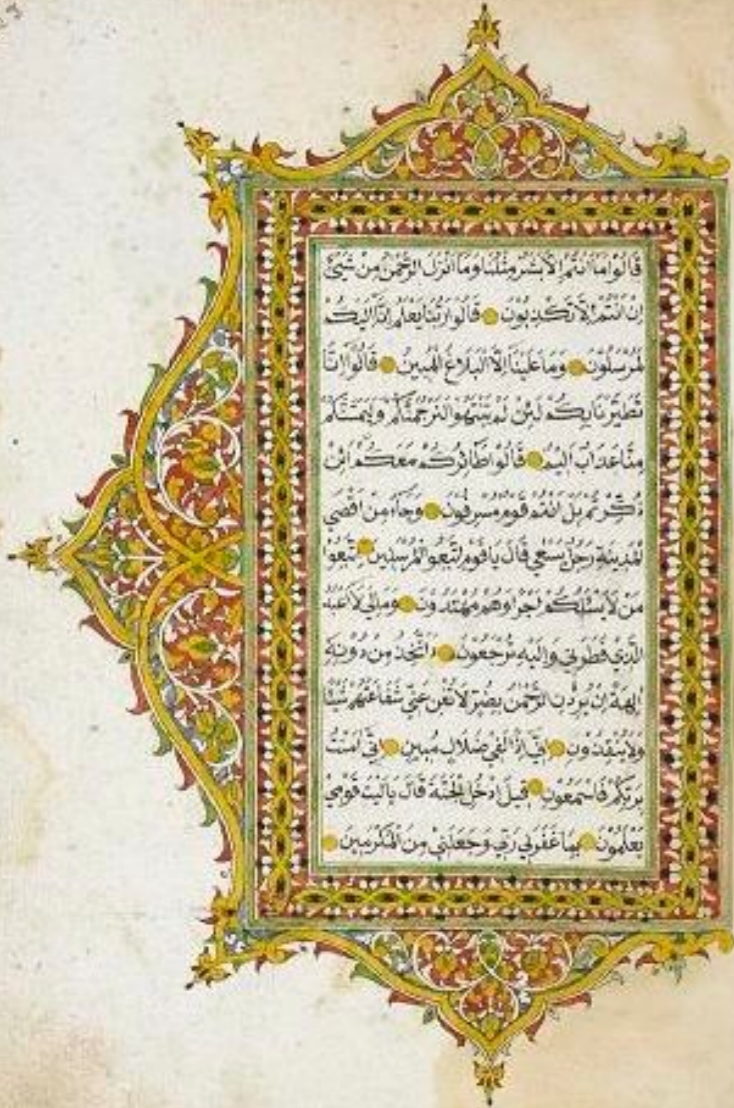 قَالُوا مَا أَنْتُمْ إِلَّا بَشَرٌ مِثْلُنَا وَمَا أَنْزَلَ الرَّحْمٰنُ مِنْ شَيْءٍ
إِنْ أَنْتُمْ إِلَّا تَكْذِبُونَ قَالُوا رَبُّنَا يَعْلَمُ إِنَّا إِلَيْكُمْ
لَمُرْسَلُونَ وَمَا عَلَيْنَا إِلَّا الْبَلَاغُ الْمُبِينُ قَالُوا إِنَّا
تَطَيَّرْنَا بِكُمْ لَئِنْ لَمْ تَنْتَهُوا لَنَرْجُمَنَّكُمْ وَلَيَمَسَّنَّكُمْ
مِنَّا عَذَابٌ أَلِيمٌ قَالُوا طَائِرُكُمْ مَعَكُمْ أَئِنْ
ذُكِّرْتُمْ بَلْ أَنْتُمْ قَوْمٌ مُسْرِفُونَ وَجَاءَ مِنْ أَقْصَى
الْمَدِينَةِ رَجُلٌ يَسْعَى قَالَ يَا قَوْمِ اتَّبِعُوا الْمُرْسَلِينَ اتَّبِعُوا
مَنْ لَا يَسْئَلُكُمْ أَجْرًا وَهُمْ مُهْتَدُونَ وَمَالِيَ لَا أَعْبُدُ
الَّذِي فَطَرَنِي وَإِلَيْهِ تُرْجَعُونَ ءَأَتَّخِذُ مِنْ دُونِهِ
آلِهَةً إِنْ يُرِدْنِ الرَّحْمٰنُ بِضُرٍّ لَا تُغْنِ عَنِّي شَفَاعَتُهُمْ شَيْئًا
وَلَا يُنْقِذُونِ إِنِّي إِذًا لَفِي ضَلَالٍ مُبِينٍ إِنِّي آمَنْتُ
بِرَبِّكُمْ فَاسْمَعُونِ قِيلَ ادْخُلِ الْجَنَّةَ قَالَ يَا لَيْتَ قَوْمِي
يَعْلَمُونَ بِمَا غَفَرَ لِي رَبِّي وَجَعَلَنِي مِنَ الْمُكْرَمِينَ